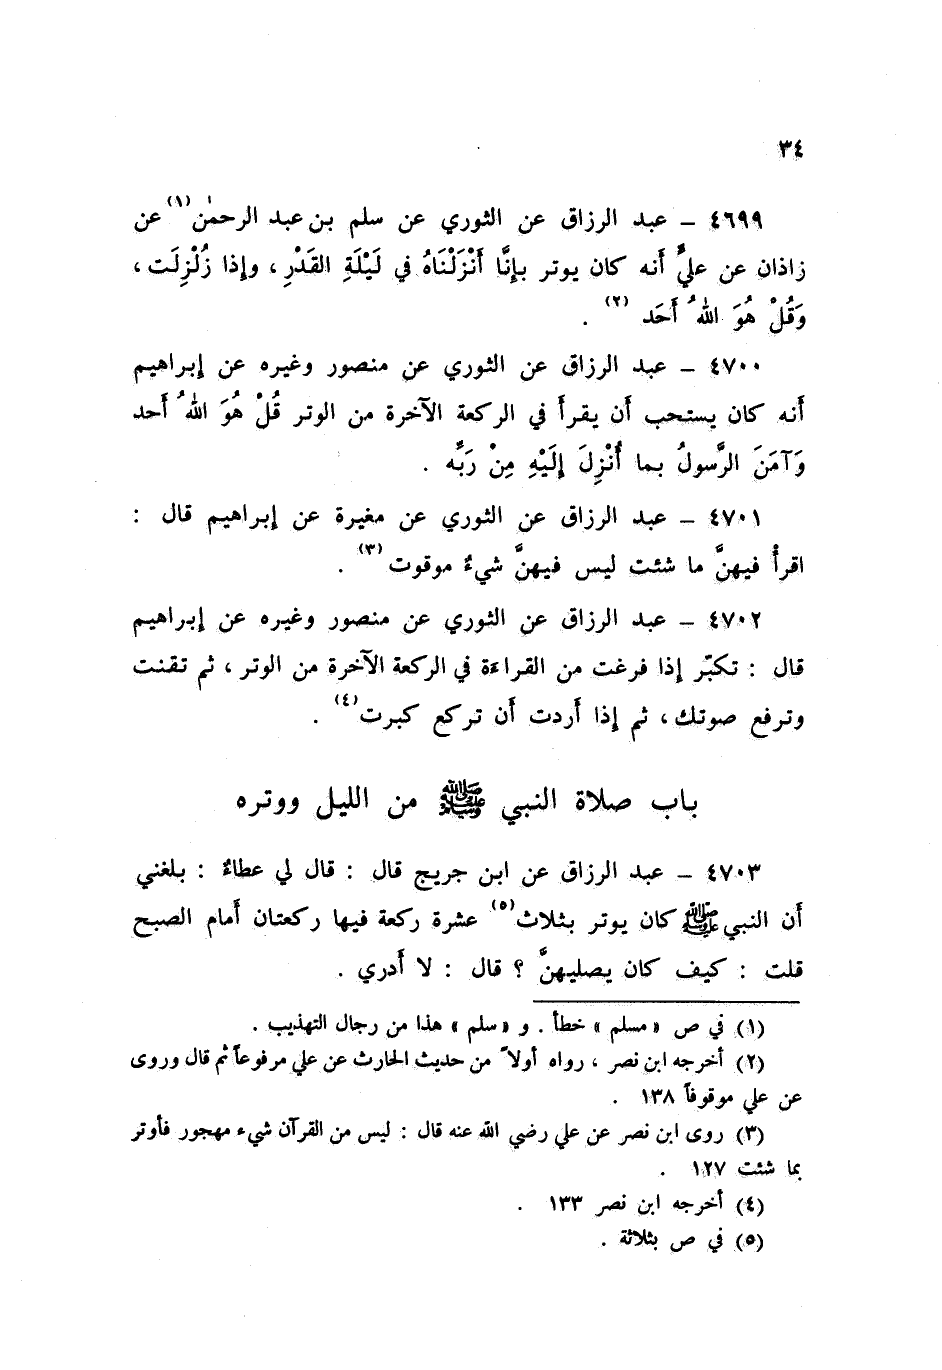 ٣٤
٤٦٩٩ – عبد الرزاق عن الثوري عن سلم بن عبد الرحمٰن(١) عن
زاذان عن عليٍّ أنه كان يوتر بإِنَّا أَنْزَلْنَاهُ في لَيْلَةِ القَدْرِ ، وإذا زُلْزِلَت ،
وَقُلْ هُوَ اللهُ أَحَد (٢) .
٤٧٠٠ – عبد الرزاق عن الثوري عن منصور وغيره عن إبراهيم
أنه كان يستحب أن يقرأ في الركعة الآخرة من الوتر قُلْ هُوَ اللهُ أَحد
وَآمَنَ الرَّسولُ بما أُنْزِلَ إِلَيْهِ مِنْ رَبِّه .
٤٧٠١ – عبد الرزاق عن الثوري عن مغيرة عن إبراهيم قال :
اقرأْ فيهنَّ ما شئت ليس فيهنَّ شيءٌ موقوت (٣) .
٤٧٠٢ – عبد الرزاق عن الثوري عن منصور وغيره عن إبراهيم
قال : تكبّر إذا فرغت من القراءة في الركعة الآخرة من الوتر ، ثم تقنت
وترفع صوتك ، ثم إذا أردت أن تركع كبرت (٤) .
باب صلاة النبي ﷺ من الليل ووتره
٤٧٠٣ – عبد الرزاق عن ابن جريج قال : قال لي عطاءٌ : بلغني
أن النبي ﷺ كان يوتر بثلاث (٥) عشرة ركعة فيها ركعتان أمام الصبح
قلت : كيف كان يصليهنَّ ؟ قال : لا أدري .
(١) في ص «مسلم» خطأ . و «سلم» هذا من رجال التهذيب .
(٢) أخرجه ابن نصر ، رواه أولاً من حديث الحارث عن علي مرفوعاً ثم قال وروى
عن علي موقوفاً ١٣٨ .
(٣) روى ابن نصر عن علي رضي الله عنه قال : ليس من القرآن شيء مهجور فأوتر
بما شئت ١٢٧ .
(٤) أخرجه ابن نصر ١٣٣ .
(٥) في ص بثلاثة .